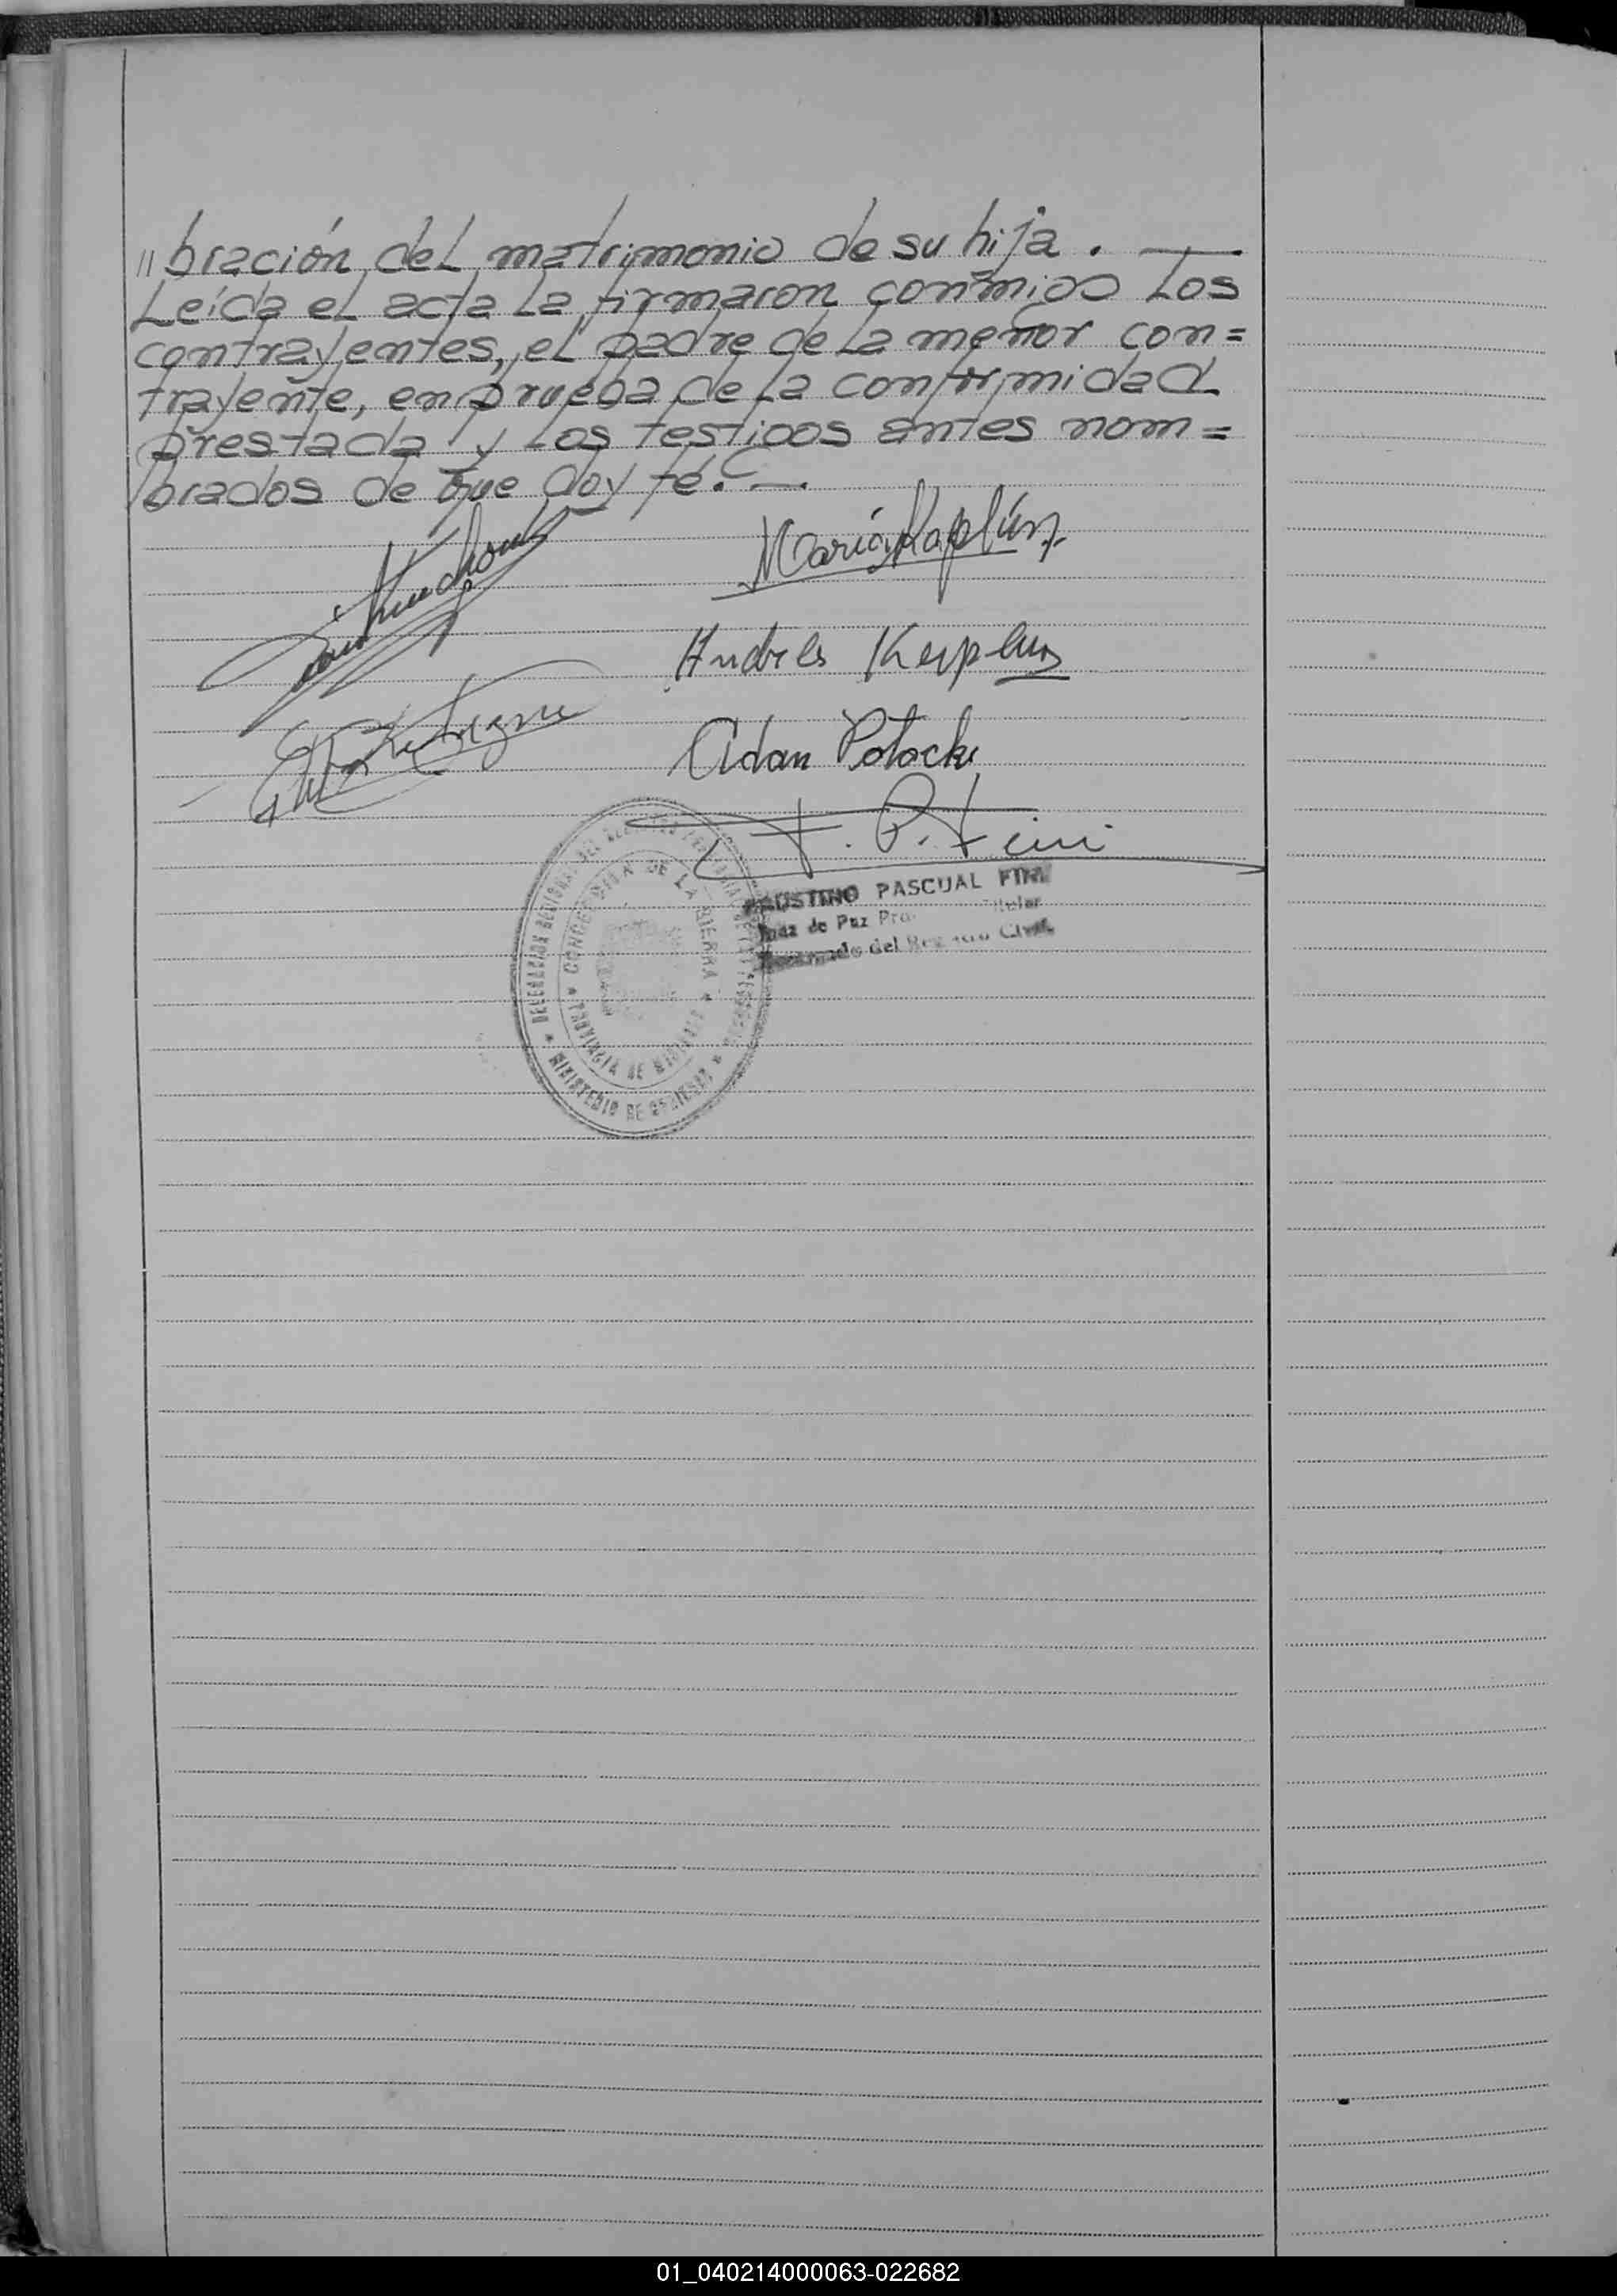 "bración del matrimonio de su hija. —
Leída el acta la firmaron conmigo los
contrayentes, el padre de la menor con=
trayente, en prueba de la conformidad
prestada y los testigos antes nom=
brados de que doy fé. —.
María Kaplún
Andrés Kaplun
Adan Potocki
F. P. Fini
FAUSTINO PASCUAL FINI
Juez de Paz Pro Titular
Encargado del Registro Civil
CONCEPCION DE LA SIERRA
PROVINCIA DE MISIONES
MINISTERIO DE GOBIERNO
01_040214000063-022682